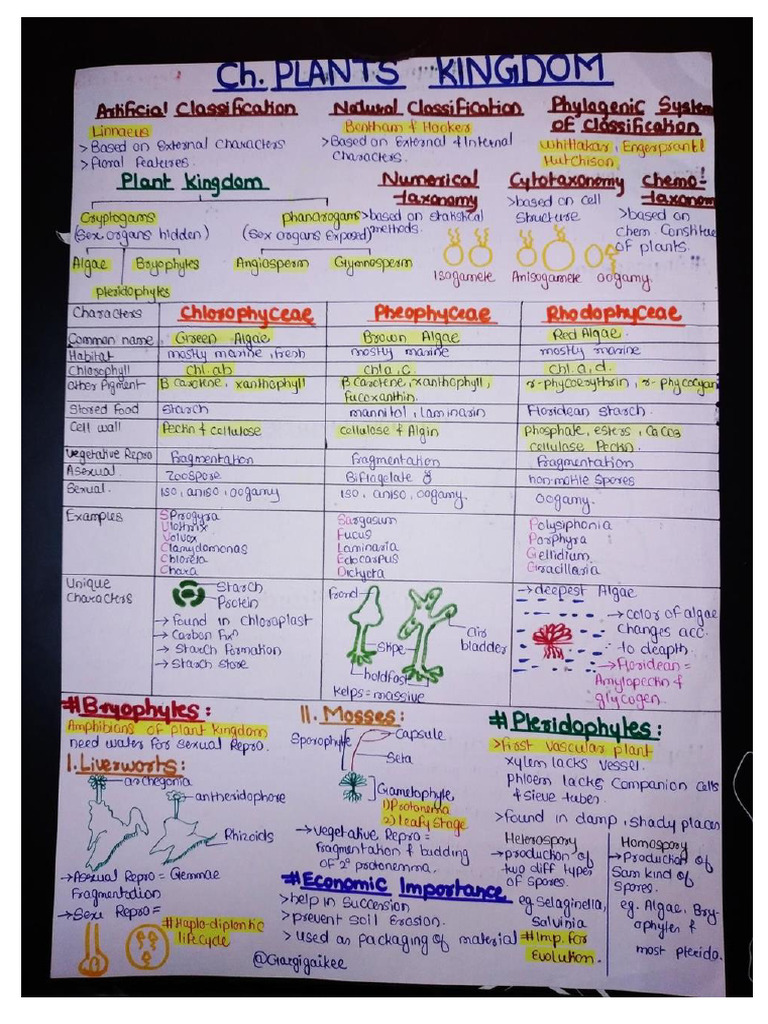 Ch. PLANTS KINGDOM
Artificial Classification
Linnaeus
> Based on External Characters
> floral features.
Natural Classification
Bentham & Hooker
> Based on External & Internal
Characters.
Phylogenic System
of Classification
Whittakar, Engerprantl
Hutchison
Plant Kingdom
Cryptogams
(Sex organs hidden)
phanerogams
(Sex organs Exposed)
Algae
Bryophytes
Pteridophytes
Angiosperm
Gymnosperm
Numerical
taxonomy
> based on statistical
methods.
Cytotaxonomy
> based on cell
structure
Chemo-
taxonom
> based on
chem Constitue
of plants.
Isogamete
Anisogamete
oogamy.
Characters Chlorophyceae Pheophyceae Rhodophyceae
Common name Green Algae Brown Algae Red Algae.
Habitat mostly marine, fresh mostly marine mostly marine
Chlorophyll chl. ab chl a, c. chl. a, d.
Other Pigment B Carotene, xanthophyll B Carotene, xanthophyll, r-phycoerythrin, r-phycocyan
fucoxanthin.
Stored Food Starch mannitol, laminarin Floridean starch.
Cell wall Pectin & cellulose cellulose & Algin phosphate, esters, CaCO3
cellulose Pectin.
Vegetative Repro Fragmentation Fragmentation Fragmentation
Asexual Zoospore Biflagelate non-motile spores
Sexual. Iso, aniso, oogamy Iso, aniso, oogamy. oogamy.
Examples
SPirogyra
Ulothrix
Volvox
Clamydomonas
Chlorela
Chara
Sargasum
Fucus
Laminaria
Edocarpus
Dictyota
Polysiphonia
Porphyra
Gellidium
Gracillaria
Unique
Characters
Starch
Protein
→ Found in chloroplast
→ Carbon Fxn
→ Starch Formation
→ Starch store
Frond
Stipe
holdfast
air
bladder
Kelps = massive
→ deepest Algae
→ color of algae
changes acc.
to deapth.
→ Floridean =
Amylopectin &
glycogen.
# Bryophytes:
Amphibians of plant kingdom
need water for sexual Repro.
I. Liverworts:
archegonia
antheridophore
Rhizoids
→ Asexual Repro = Gemmae
Fragmentation
→ Sexu Repro =
# Haplo-diplontic
lifecycle
II. Mosses:
Sporophyte
Capsule
Seta
Gametophyte
1) Protonema
2) leafy stage
→ vegetative Repro =
Fragmentation & budding
of 2° protonemma.
# Economic Importance
> help in Succession
> prevent Soil Erosion.
> used as packaging of material
@Gargigaikee
# Pteridophytes:
> First vascular plant
xylem lacks vessel.
phloem lacks Companion cells
& sieve tubes.
> found in damp, shady places
Heterospory
→ production of
two diff types
of spores.
eg. Selaginella,
Salvinia
# Imp. for
Evolution.
Homospory
→ Production of
Sam kind of
spores.
eg. Algae, Bry-
ophytes &
most pterido.